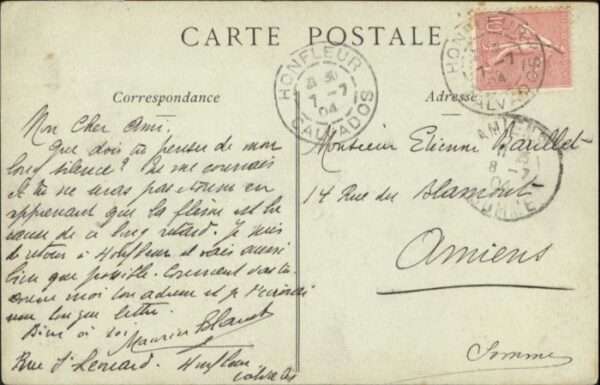 CARTE POSTALE
Correspondance
Adresse
HONFLEUR
7-7
04
CALVADOS
HONFLEUR
7-7
04
CALVADOS
AMIENS
8-7
04
SOMME
Mon Cher Ami.
Que dois tu penser de mon
long silence? Tu me connais
et tu ne seras pas étonné en
apprenant que la flême est la
cause de ce long retard. Je suis
de retour à Honfleur et vais aussi
bien que possible. Comment vas tu
donne moi ton adresse et je t'écrirai
une longue lettre.
Bien à toi
Maurice
Rue St Léonard. Honfleur
Calvados
Monsieur Etienne Barillet
14 Rue du Blamont
Amiens
Somme